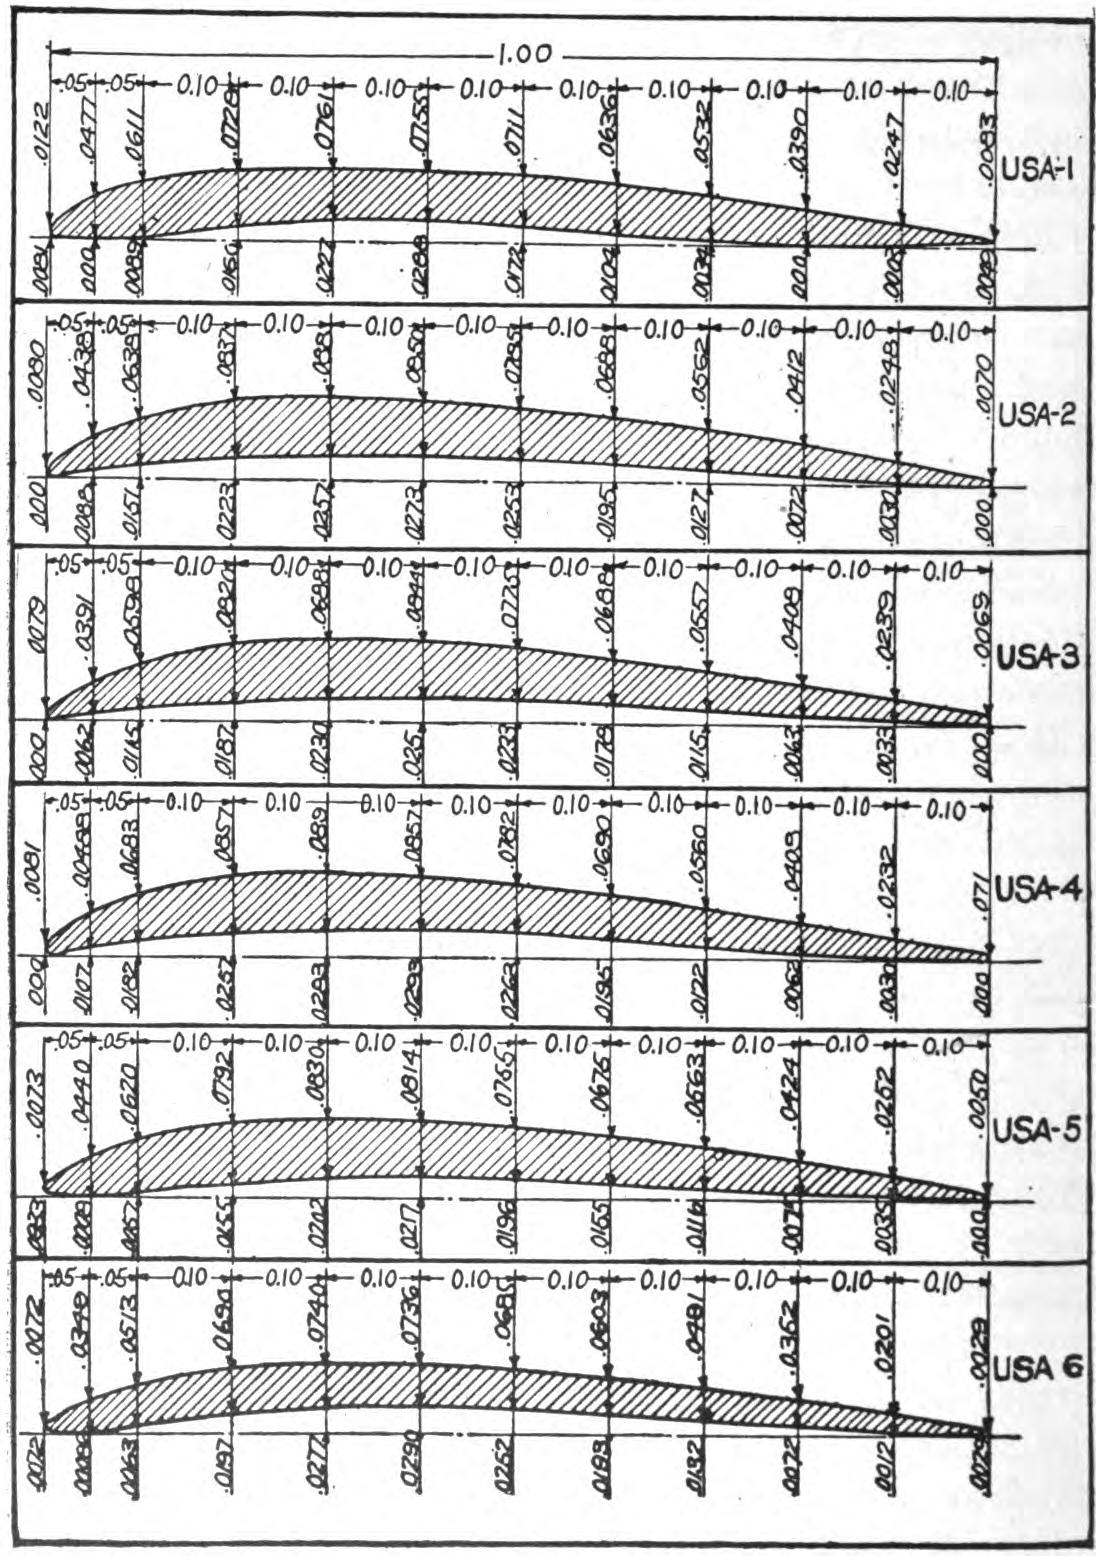 1.00
.05 .05 0.10 0.10 0.10 0.10 0.10 0.10 0.10 0.10 0.10
.0122 .0477 .0611 .0728 .0761 .0755 .0711 .0636 .0532 .0390 .0247 .0083
USA-1
.0031 .000 .0039 .0227 .0288 .0172 .0034 .000 .0049
.05 .05 0.10 0.10 0.10 0.10 0.10 0.10 0.10 0.10 0.10
.0080 .0438 .0638 .0837 .0850 .0785 .0688 .0562 .0412 .0248 .0070
USA-2
.000 .0088 .0157 .0223 .0257 .0273 .0253 .0195 .0127 .0072 .0030 .000
.05 .05 0.10 0.10 0.10 0.10 0.10 0.10 0.10 0.10 0.10
.0079 .0391 .0598 .0820 .0688 .0844 .0775 .0688 .0557 .0408 .0239 .0069
USA-3
.000 .0062 .0115 .0187 .0230 .025 .0223 .0178 .0115 .0063 .0033 .000
.05 .05 0.10 0.10 0.10 0.10 0.10 0.10 0.10 0.10 0.10
.0081 .0488 .0683 .0857 .089 .0857 .0782 .0690 .0560 .0409 .0232 .071
USA-4
.000 .0107 .0182 .0257 .0293 .0293 .0263 .0195 .0122 .0062 .0030 .000
.05 .05 0.10 0.10 0.10 0.10 0.10 0.10 0.10 0.10 0.10
.0073 .0440 .0620 .0792 .0830 .0814 .0766 .0676 .0563 .0424 .0252 .0050
USA-5
.0029 .0057 .0155 .0202 .0217 .0196 .0155 .0116 .0075 .0035 .000
.05 .05 0.10 0.10 0.10 0.10 0.10 0.10 0.10 0.10 0.10
.0072 .0348 .0513 .0690 .0740 .0736 .0685 .0603 .0481 .0352 .0201 .0029
USA 6
.0072 .0063 .0197 .0277 .0290 .0252 .0193 .0132 .0072 .0012 .0029